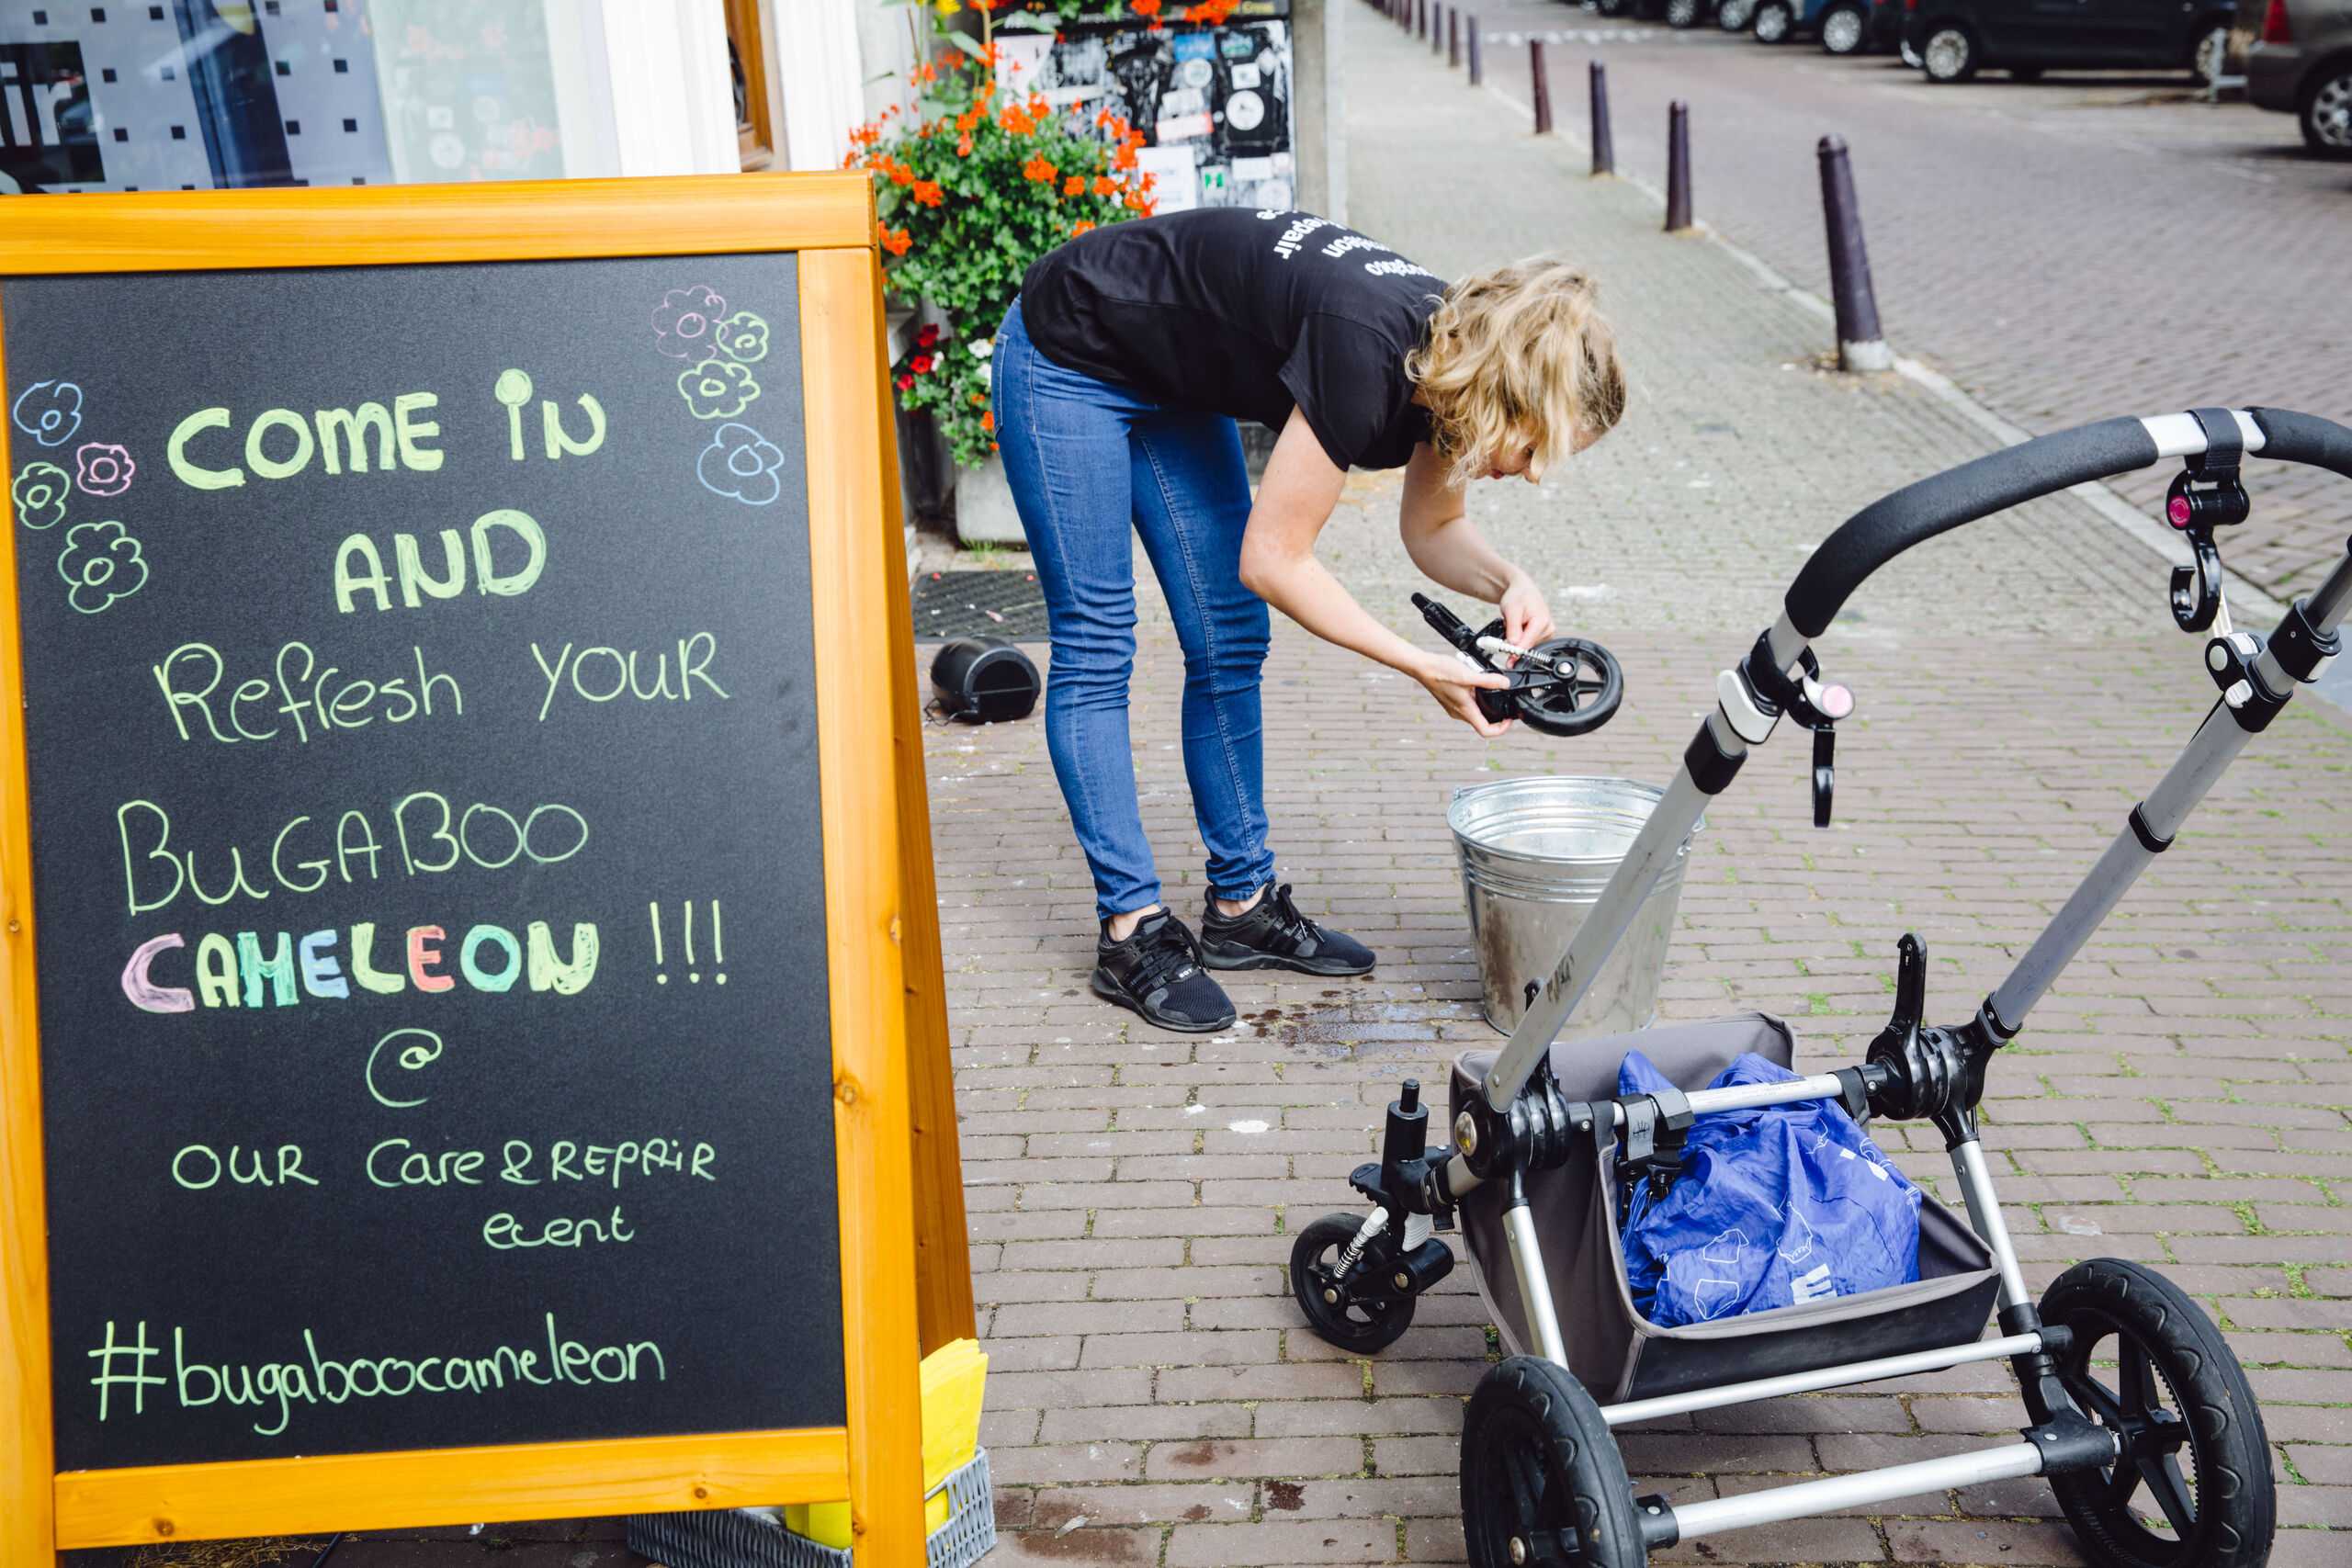 COME IN
AND
Refresh YOUR
BUGABOO
CAMELEON !!!
@
OUR Care & REPAIR
event
#bugaboocameleon
repair